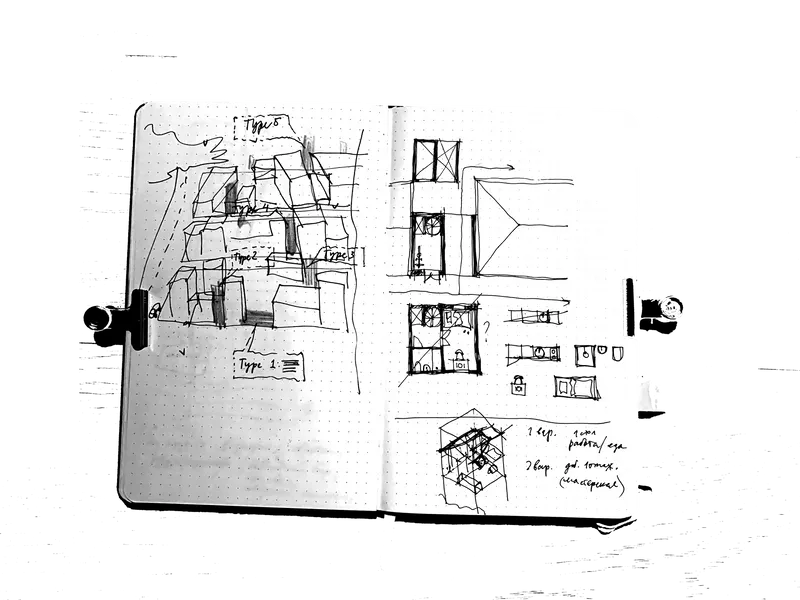 Type 5
Type 4
Type 2
Type 3
Type 1:
?
1 вар. 1 эт.
работа/еда
2 вар. доб. 1 этаж.
(мастерская)